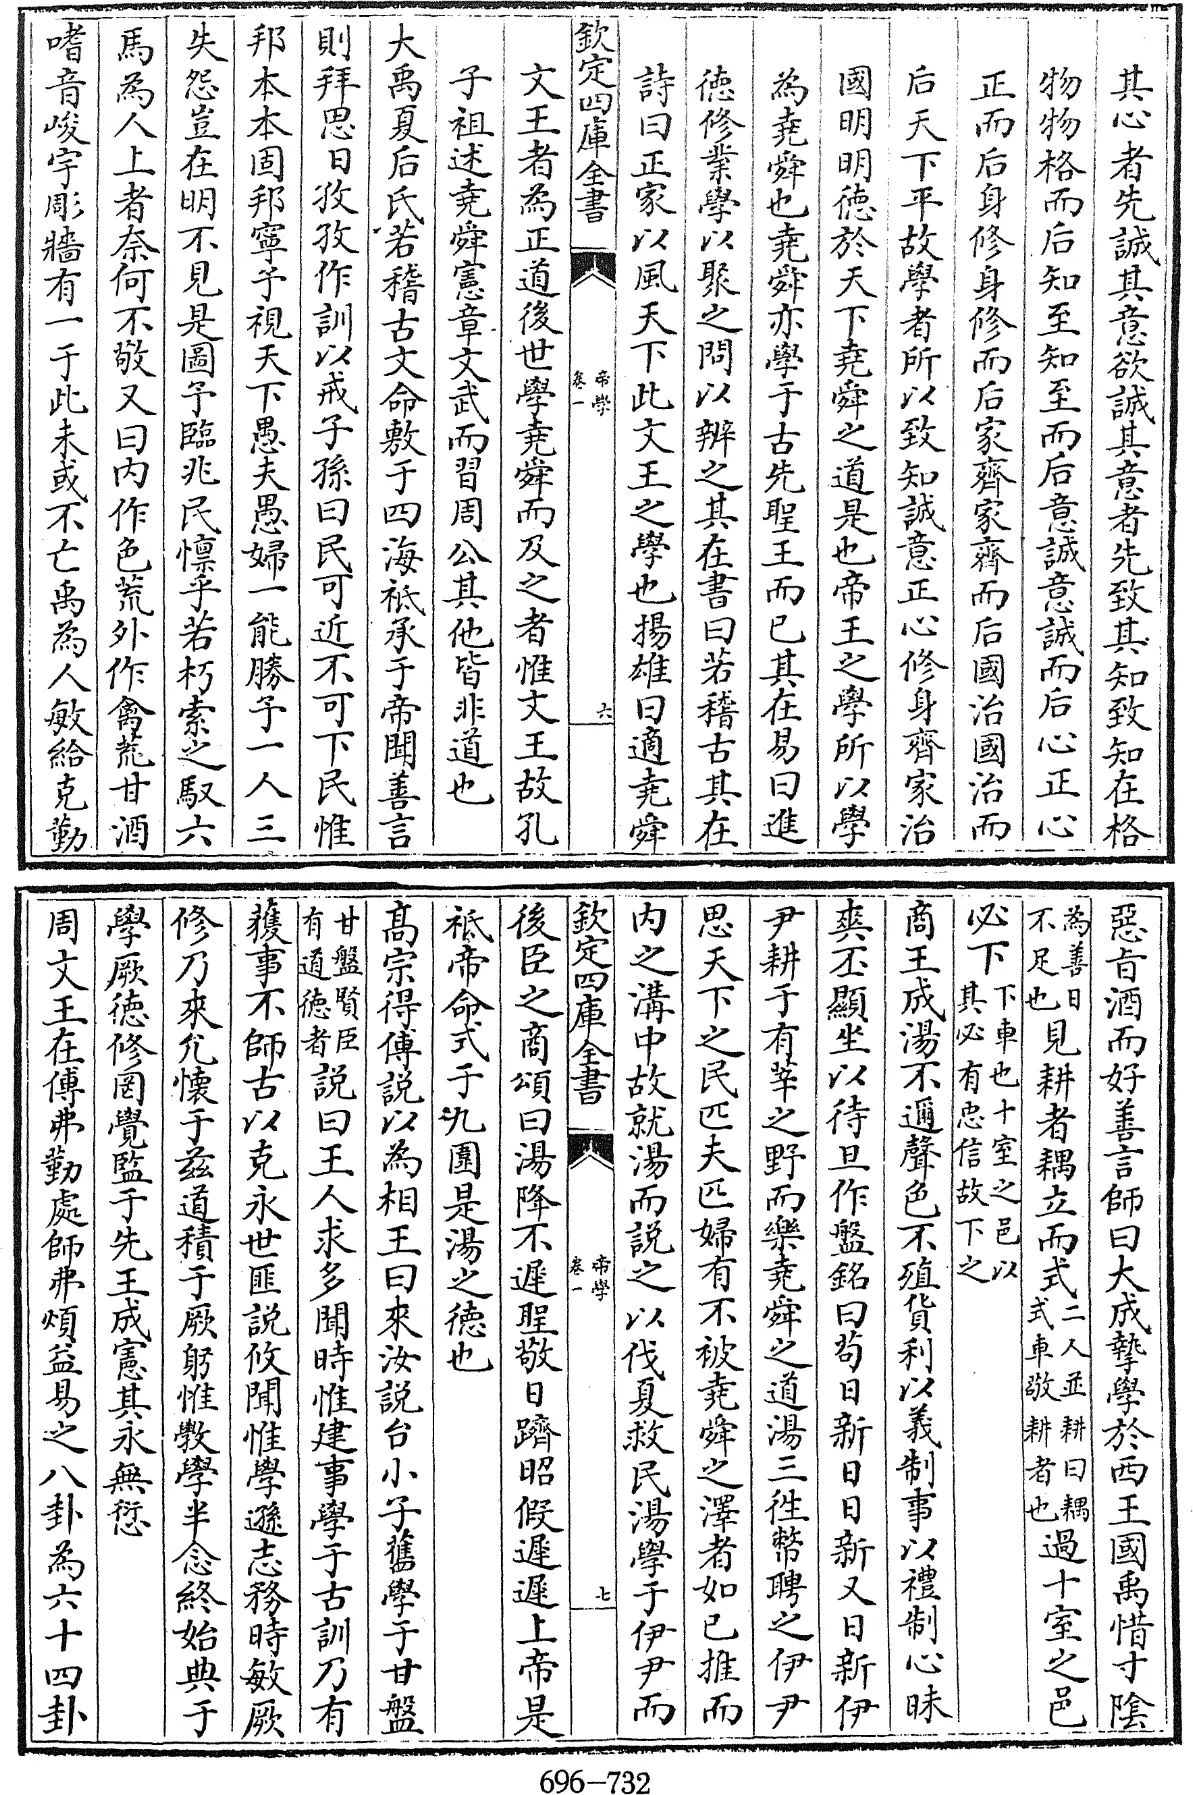 其心者先誠其意欲誠其意者先致其知致知在格
物物格而后知至知至而后意誠意誠而后心正心
正而后身修身修而后家齊家齊而后國治國治而
后天下平故學者所以致知誠意正心修身齊家治
國明明德於天下堯舜之道是也帝王之學所以學
為堯舜也堯舜亦學于古先聖王而已其在易曰進
德修業學以聚之問以辨之其在書曰若稽古其在
詩曰正家以風天下此文王之學也揚雄曰適堯舜
欽定四庫全書
帝學
卷一
六
文王者為正道後世學堯舜而及之者惟文王故孔
子祖述堯舜憲章文武而習周公其他皆非道也
大禹夏后氏若稽古文命敷于四海祗承于帝聞善言
則拜思日孜孜作訓以戒子孫曰民可近不可下民惟
邦本本固邦寧予視天下愚夫愚婦一能勝予一人三
失怨豈在明不見是圖予臨兆民懍乎若朽索之馭六
馬為人上者奈何不敬又曰内作色荒外作禽荒甘酒
嗜音峻宇彫牆有一于此未或不亡禹為人敏給克勤
惡旨酒而好善言師曰大成摯學於西王國禹惜寸陰
為善日
不足也
見耕者耦立而式
二人並耕曰耦
式車敬耕者也
過十室之邑
必下
下車也十室之邑以
其必有忠信故下之
商王成湯不邇聲色不殖貨利以義制事以禮制心昧
爽丕顯坐以待旦作盤銘曰茍日新日日新又日新伊
尹耕于有莘之野而樂堯舜之道湯三往幣聘之伊尹
思天下之民匹夫匹婦有不被堯舜之澤者如已推而
内之溝中故就湯而説之以伐夏救民湯學于伊尹而
欽定四庫全書
帝學
卷一
七
後臣之商頌曰湯降不遲聖敬日躋昭假遲遲上帝是
祗帝命式于九圍是湯之德也
髙宗得傅説以為相王曰來汝説台小子舊學于甘盤
甘盤賢臣
有道德者
説曰王人求多聞時惟建事學于古訓乃有
獲事不師古以克永世匪説攸聞惟學遜志務時敏厥
修乃來允懷于兹道積于厥躬惟斅學半念終始典于
學厥德修罔覺監于先王成憲其永無愆
周文王在傅弗勤處師弗煩益易之八卦為六十四卦
696-732